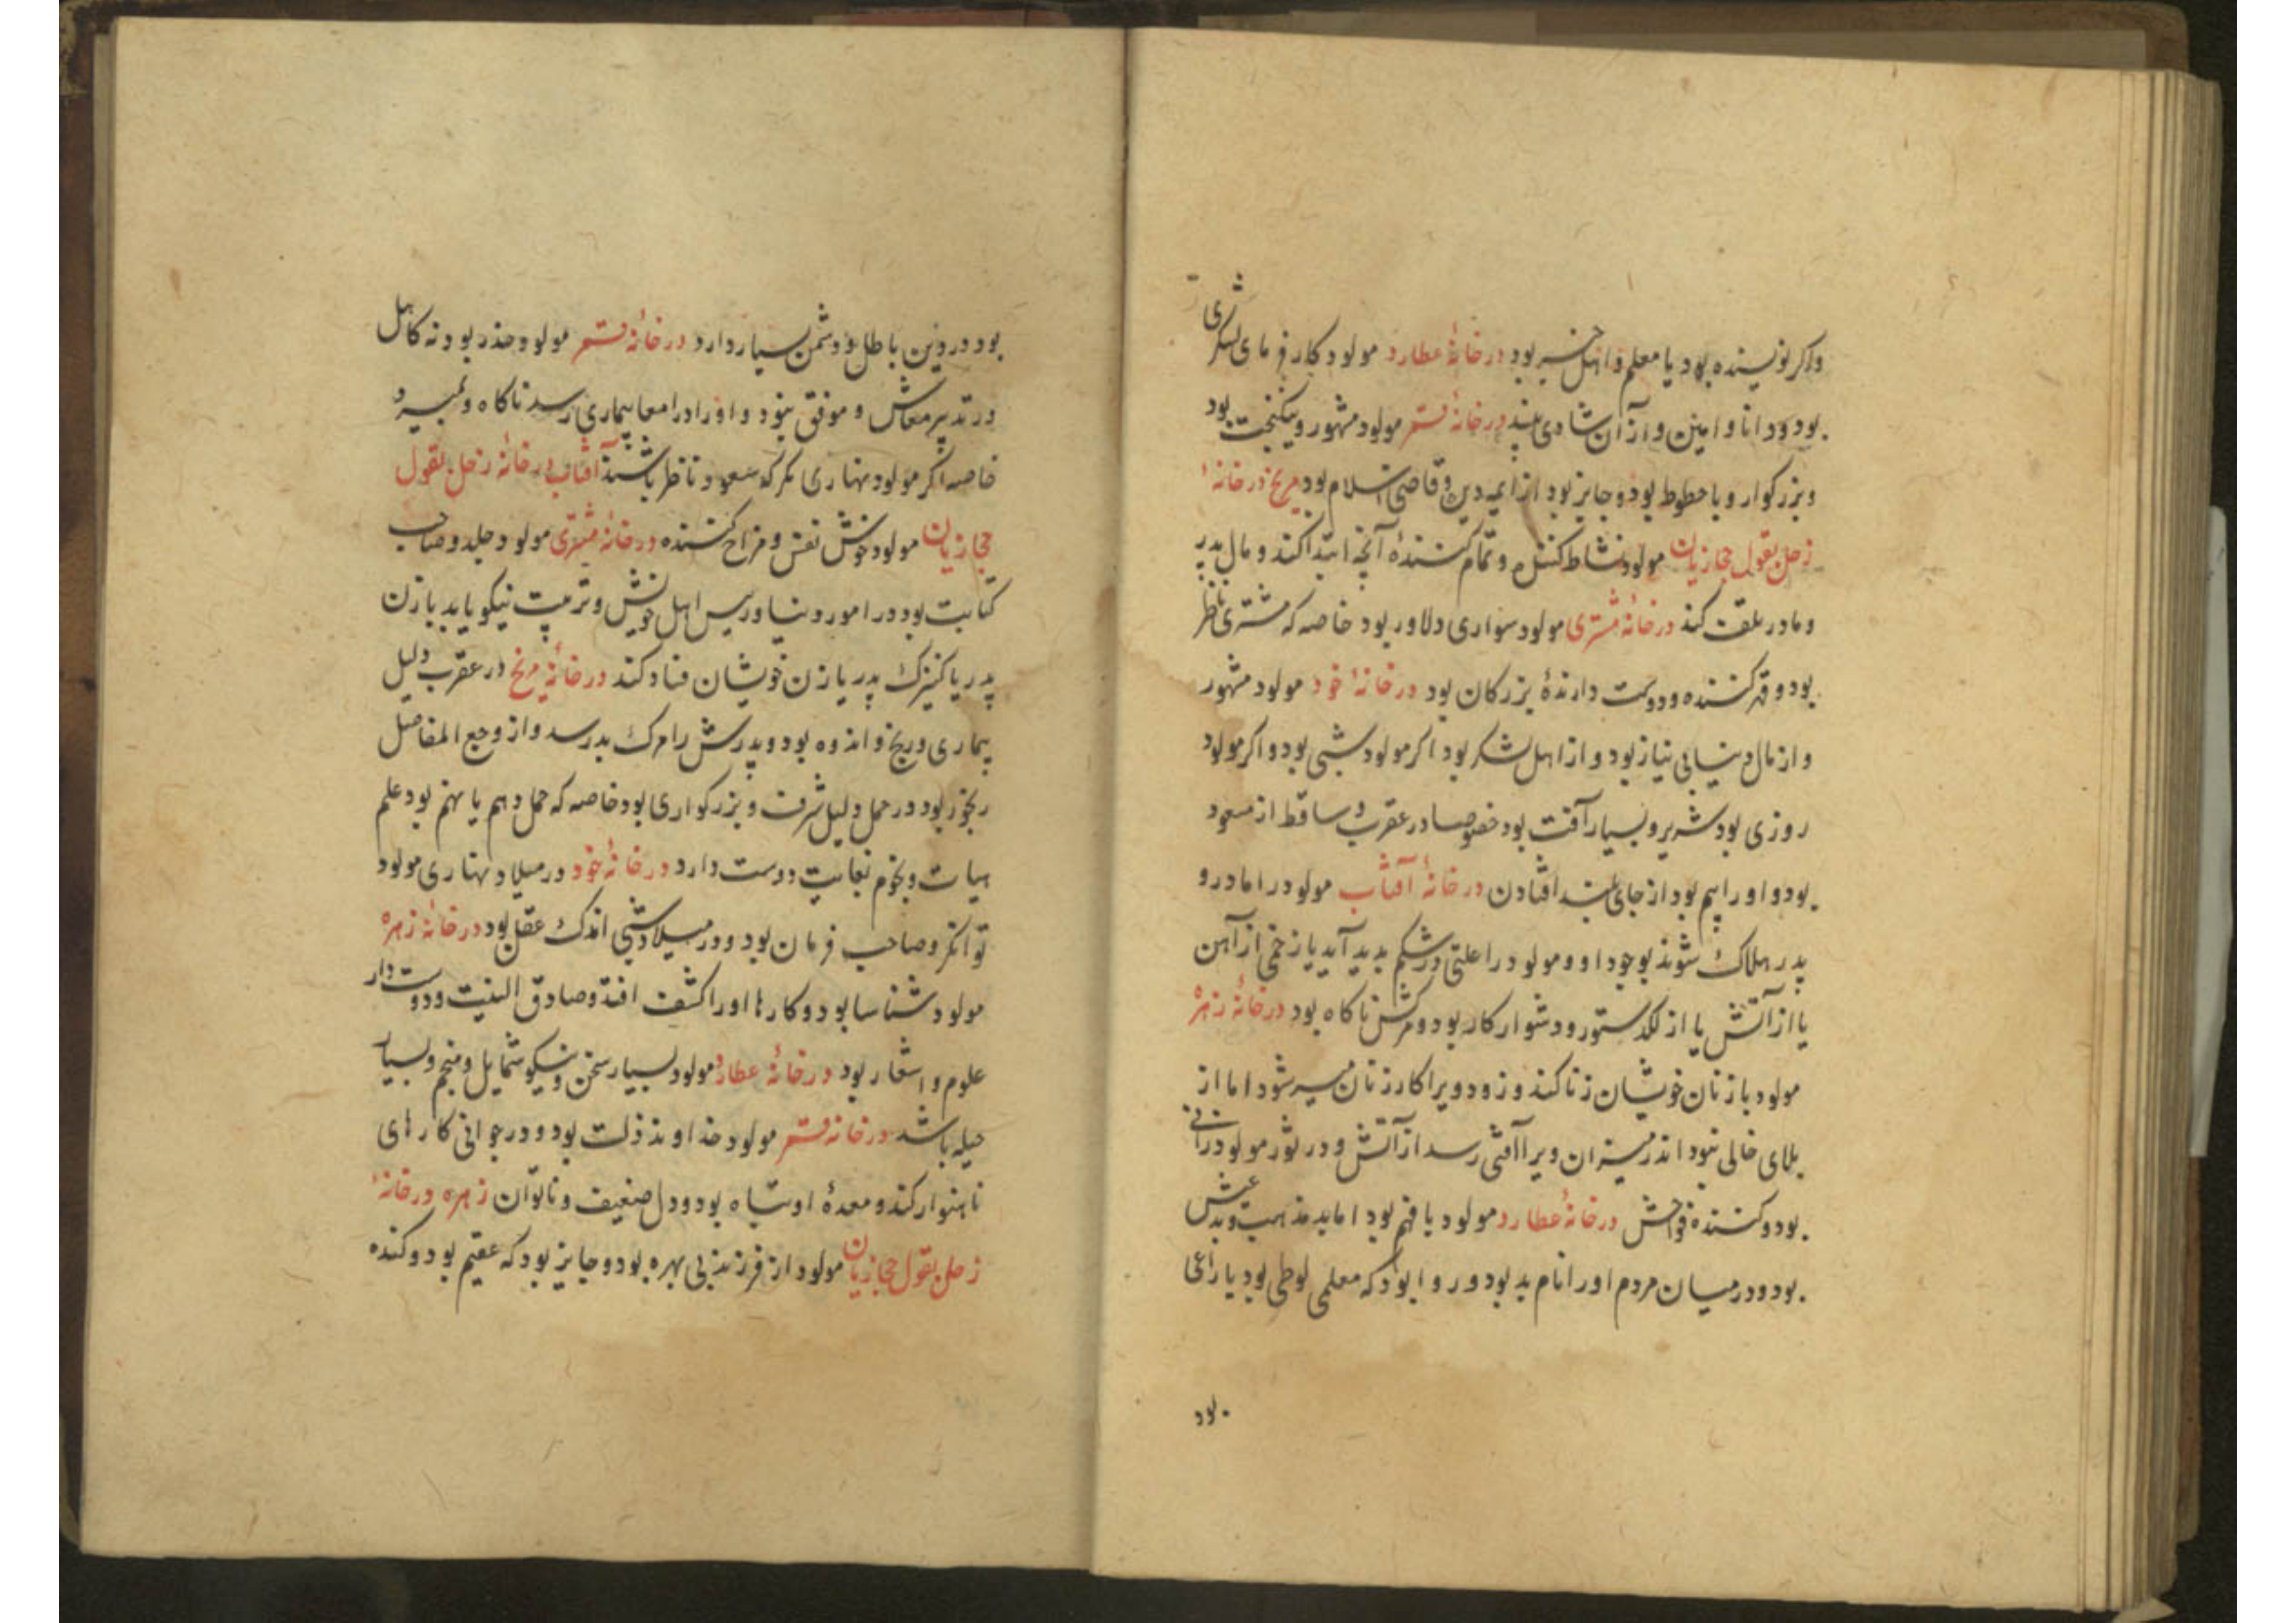 واکر نویسنده بود یا معلم و اهل خیر بود در خانهٔ عطارد مولود کارفرمای لشکری
بود و دانا و امین و از آن شادی بیند در خانهٔ قمر مولود مشهور و نیکبخت بود
و بزرکوار و با حظوظ بود و جایز بود از ایمه دین و قاضی اسلام بود مریخ در خانهٔ
زحل بقول حجازیان مولود نشاط کننده و تمام کنندهٔ آنچه ابتدا کند و مال پدر
و مادر تلف کند در خانهٔ مشتری مولود سواری دلاور بود خاصه که مشتری ناظر
بود و قهر کننده و دوست دارندهٔ بزرکان بود در خانهٔ خود مولود مشهور
و از مال دنیا بی نیاز بود و از اهل لشکر بود اکر مولود شبی بود و اکر مولود
روزی بود شریر و بسیار آفت بود خصوصا در عقرب و ساقط از سعود
بود و او را بیم بود از جای بلند افتادن در خانهٔ آفتاب مولود را مادر و
پدر هلاک شوند بوجود او و مولود را علتی در شکم پدید آید یا زخمی از آهن
یا از آتش یا از لکد ستور و دشوار کار بود و مرکش ناکاه بود در خانهٔ زهره
مولود با زنان خویشان زنا کند و زود ویرا کار زنان میسر شود اما از
بلای خالی نبود اندر میزان ویرا آفتی رسد از آتش و در ثور مولود زانی
بود و کننده فواحش در خانهٔ عطارد مولود با فهم بود اما بد مذهب و بد عیش
بود و در میان مردم او را نام بد بود و روا بود که معلمی لوطی بود یا راعی
بود
بود در دین باطل و دشمن بسیار دارد در خانهٔ قمر مولود حذر بود نه کاهل
در تدبیر معاش و موفق نبود و او را در امعا بیماری رسد ناکاه و بمیرد
خاصه اکر مولود نهاری مکر که سعود ناظر باشند آفتاب در خانهٔ زحل بقول
حجازیان مولود خوش نفس و مزاح کننده در خانهٔ مشتری مولود جلد و صاحب
کتابت بود در امور دنیا و رییس اهل خویش و تربیت نیکو یابد با زن
پدر یا کنیزک پدر یا زن خویشان فساد کند در خانهٔ مریخ در عقرب دلیل
بیماری و رنج و اندوه بود و پدرش را مرک بد رسد و از وجع المفاصل
رنجور بود در حمل دلیل شرف و بزرکواری بود خاصه که حمل دهم یا نهم بود علم
هیات و نجوم بغایت دوست دارد در خانهٔ خود در میلاد نهاری مولود
توانکر و صاحب فرمان بود و در میلاد شبی اندک عقل بود در خانهٔ زهره
مولود شناسا بود و کارها او را کشف افتد و صادق النیت و دوست دار
علوم و اشعار بود در خانهٔ عطارد مولود بسیار سخن و نیکو شمایل و منجم و بسیار
حیله باشد در خانهٔ قمر مولود خداوند ذلت بود و در جوانی کارهای
ناهنوار کند و معدهٔ او تباه بود و دل ضعیف و ناتوان زهره در خانهٔ
زحل بقول حجازیان مولود از فرزند بی بهره بود و جایز بود که عقیم بود و کننده